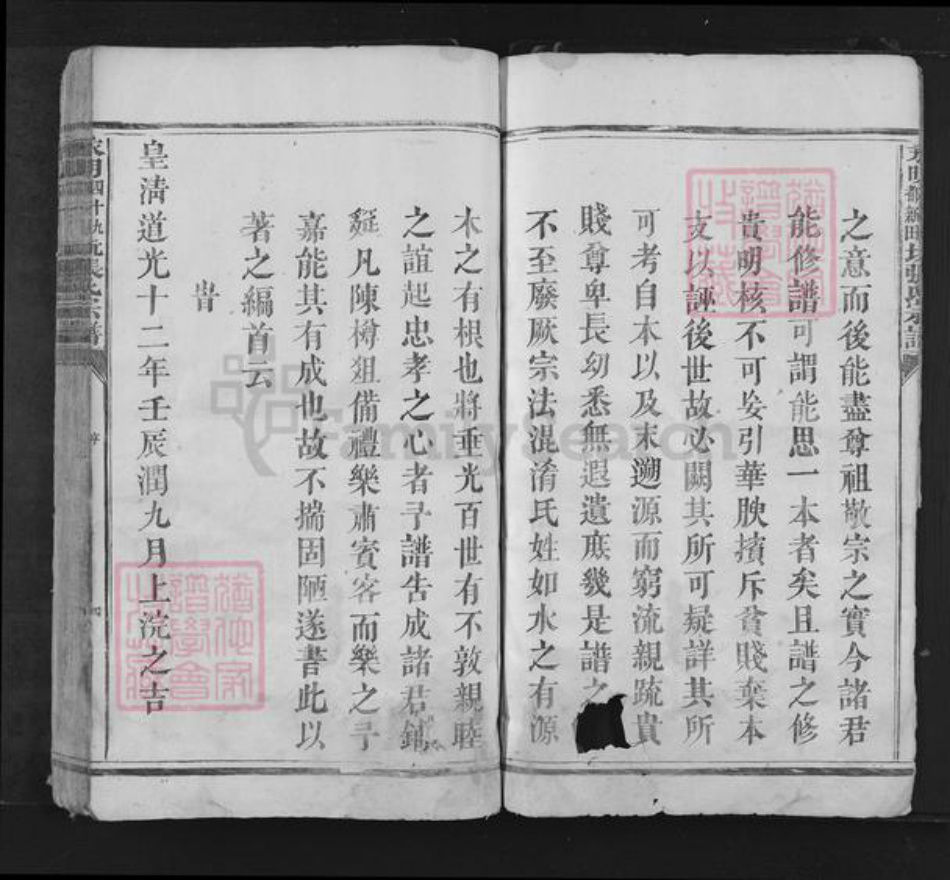 之意而後能盡尊祖敬宗之實今諸君
能修譜可謂能思一本者矣且譜之修
貴明核不可妄引華腴擯斥貧賤棄本
支以誣後世故必闕其所可疑詳其所
可考自本以及末遡源而窮流親疏貴
賤尊卑長幼悉無遐遺庶幾是譜之
不至廢厥宗法混淆氏姓如水之有源
木之有根也將垂光百世有不敦親睦
之誼起忠孝之心者乎譜告成諸君鋪
筵凡陳樽俎備禮樂肅賓客而樂之予
嘉能其有成也故不揣固陋遂書此以
著之編首云
旹
皇淸道光十二年壬辰潤九月上浣之吉
張氏宗譜
FamilySearch